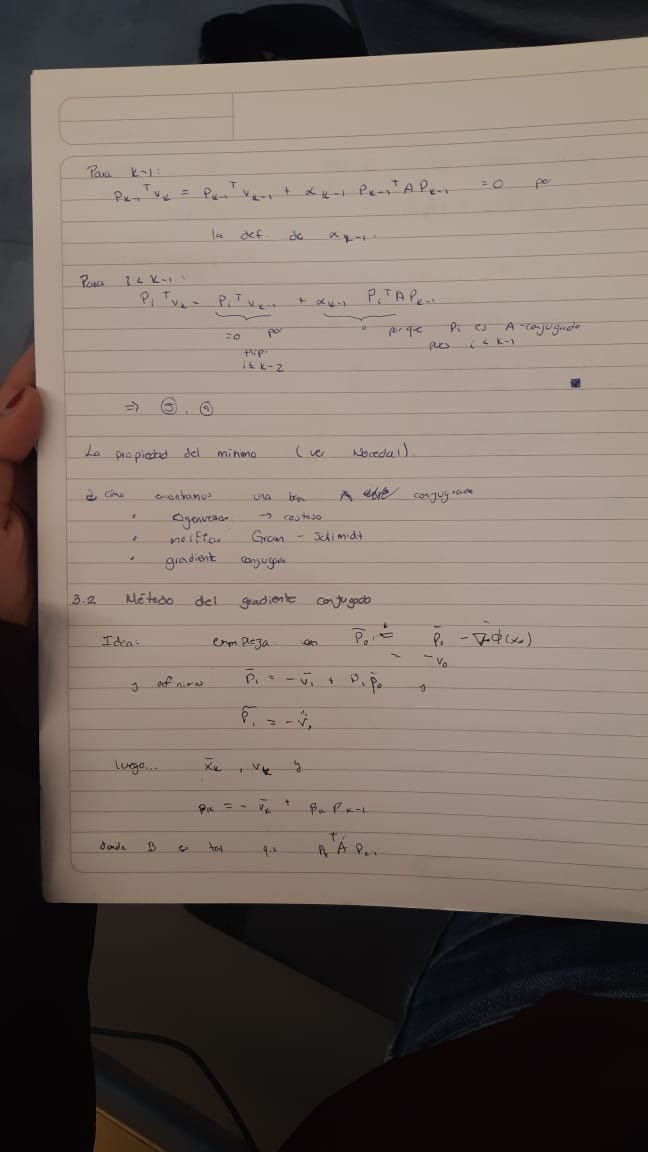 Para k-1:
P_{k-1}^T v_k = P_{k-1}^T v_{k-1} + α_{k-1} P_{k-1}^T A P_{k-1} = 0 por
la def. de α_{k-1}.
Para i < k-1:
P_i^T v_k = P_i^T v_{k-1} + α_{k-1} P_i^T A P_{k-1}
=0 por 0 porque P_i es A-conjugado
hip. pues i < k-1
i ≤ k-2
⇒ , 
La propiedad del mínimo (ver Nocedal).
¿Cómo encontramos una A conjugada
• → costoso
• Gram - Schimidt
• gradiente conjugado
3.2 Método del gradiente conjugado
Idea: empieza con P̄_0 = - ∇φ(x_0)
= -v_0
y definimos P̄_1 = - v̄_1 + β_1 p̄_0 y
P̄_1 = - v̄_1
luego... x̄_k , v_k y
p_k = - v̄_k + β_k P_{k-1}
donde B es tal que A